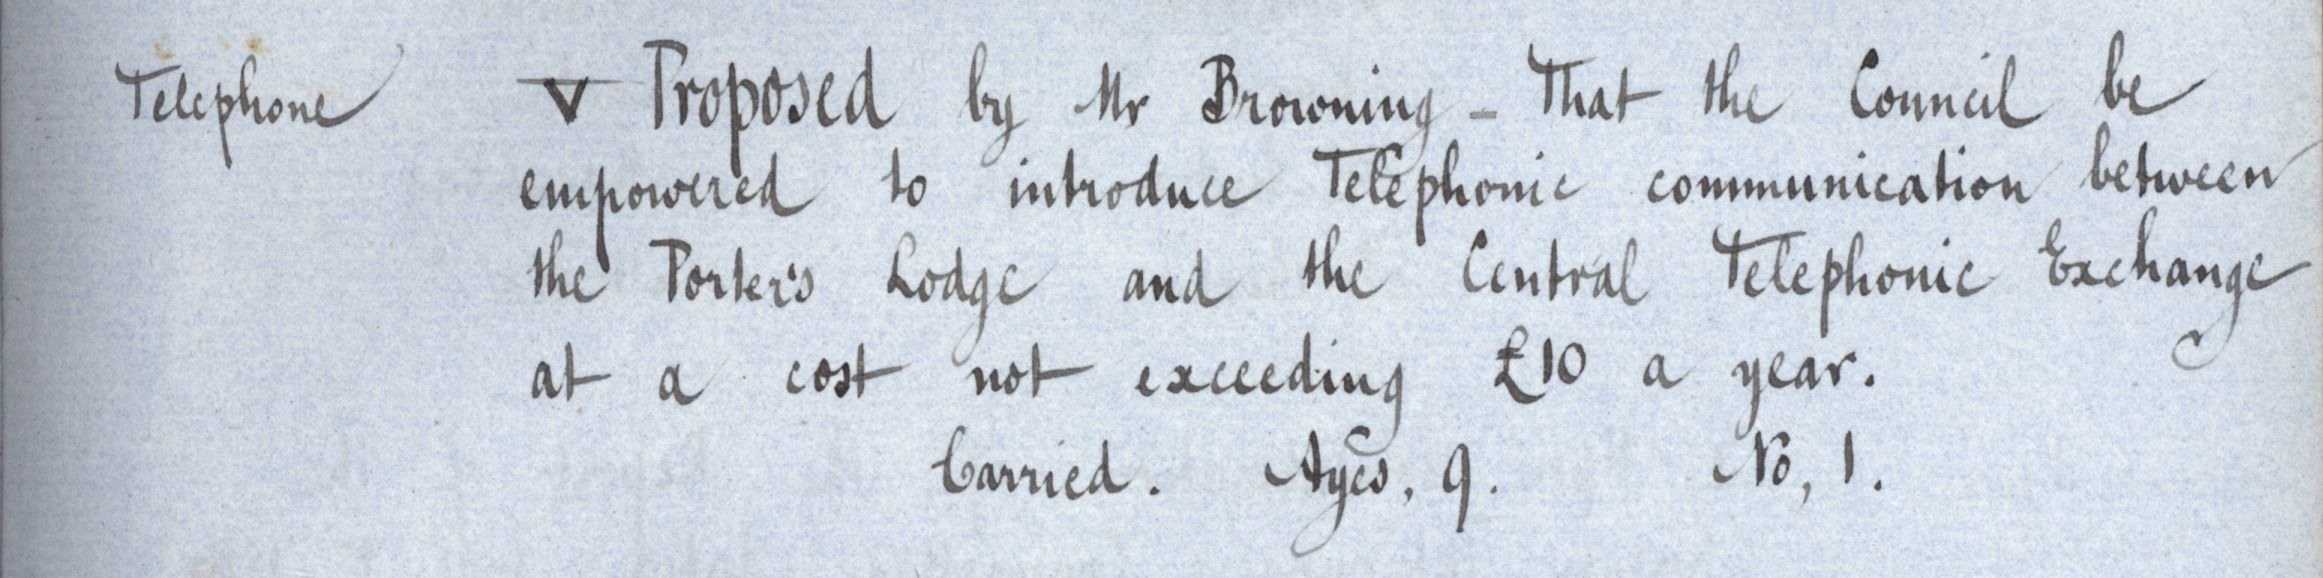 Telephone V Proposed by Mr Browning - That the Council be
empowered to introduce Telephonic communication between
the Porter's Lodge and the Central Telephonic Exchange
at a cost not exceeding £10 a year.
Carried. Ayes, 9. No, 1.